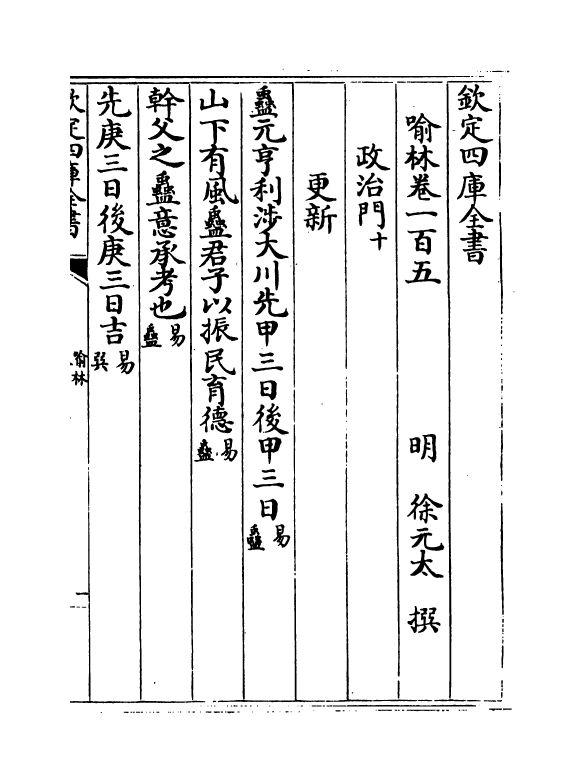 欽定四庫全書
喻林卷一百五
明 徐元太 撰
政治門十
更新
蠱元亨利涉大川先甲三日後甲三日易蠱
山下有風蠱君子以振民育德易蠱
幹父之蠱意承考也易蠱
先庚三日後庚三日吉易巽
欽定四庫全書
喻林
一